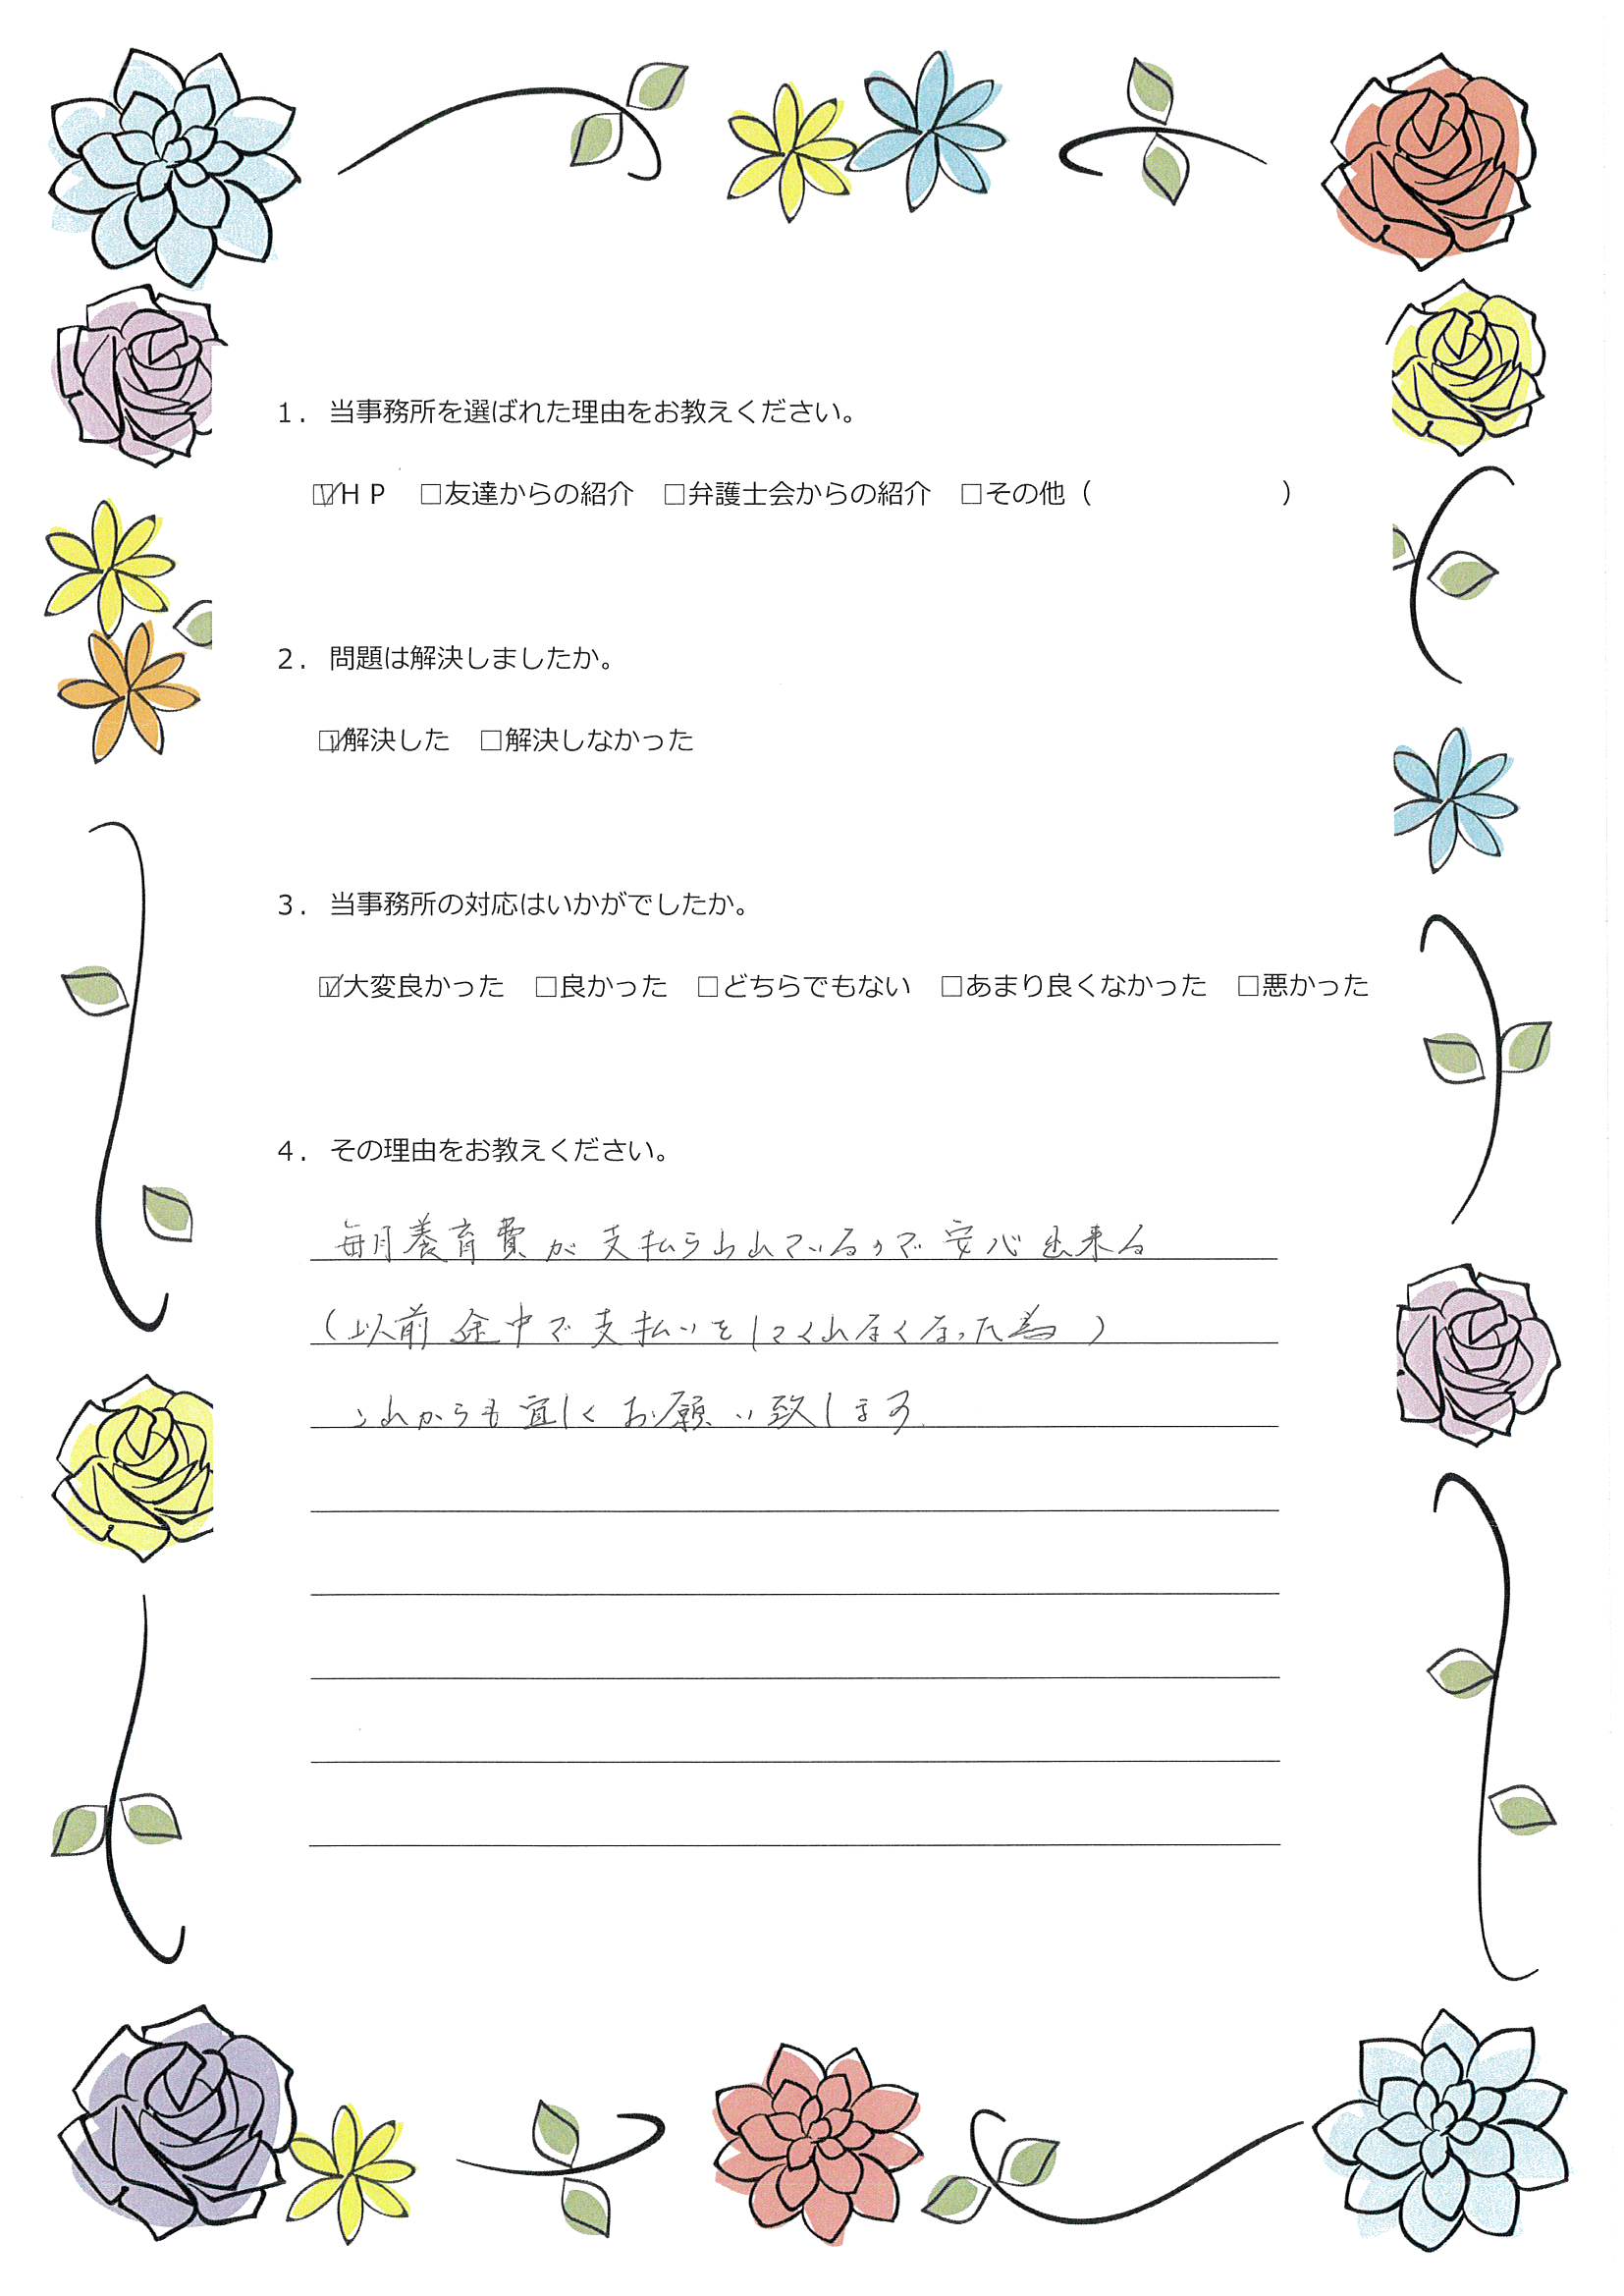 １．当事務所を選ばれた理由をお教えください。
☑ＨＰ　□友達からの紹介　□弁護士会からの紹介　□その他（　　　　　　　）
２．問題は解決しましたか。
☑解決した　□解決しなかった
３．当事務所の対応はいかがでしたか。
☑大変良かった　□良かった　□どちらでもない　□あまり良くなかった　□悪かった
４．その理由をお教えください。
毎月養育費が支払られているので安心出来る
（以前途中で支払いをしてくれなくなった為）
これからも宜しくお願い致します。